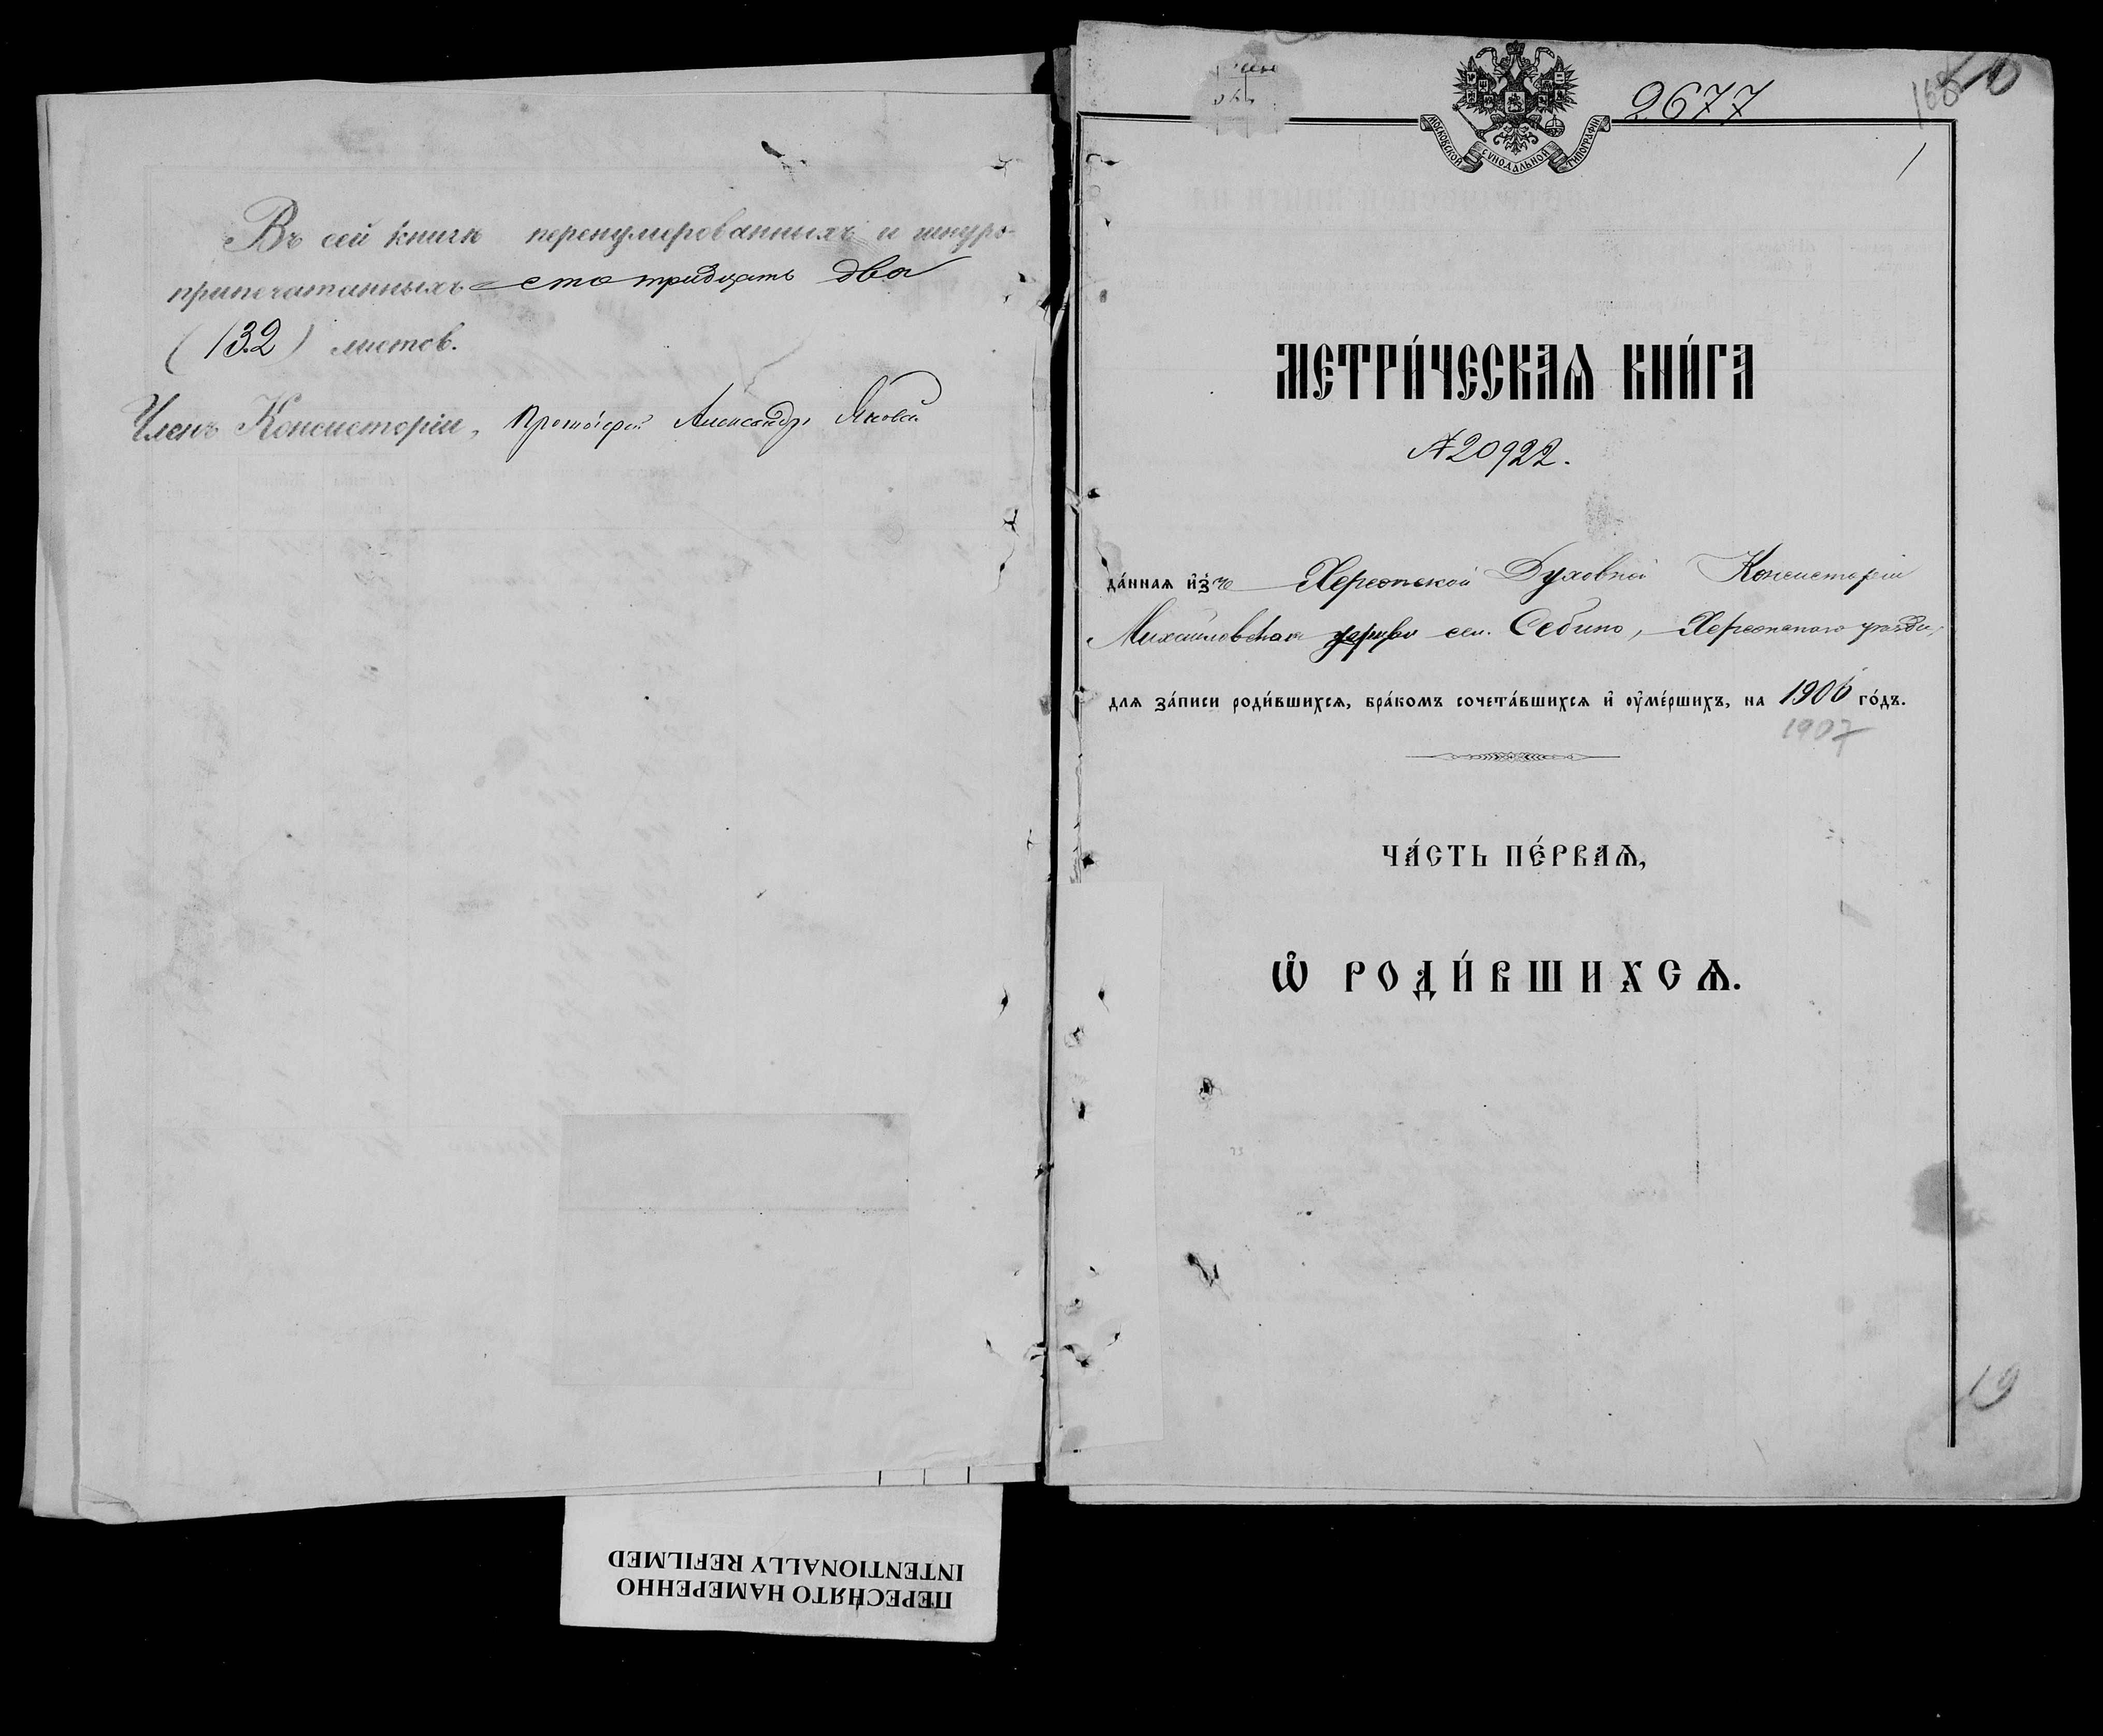 Въ сей книгѣ перенумерованныхъ и шнуро-
припечатанныхъ сто тридцать два
(132) листов.
Членъ Консисторіи, Протоіерей Александръ
ПЕРЕСНЯТО НАМЕРЕННО
INTENTIONALLY REFILMED
2677
168
10
1
МОСКОВСКОЙ СѴНОДАЛЬНОЙ ТИПОГРАФІИ
МЕТРИ́ЧЕСКАѦ КНИ́ГА
№ 20922.
да́ннаѧ и҆зъ Херсонской Духовной Консисторіи
Михайловская церкви сел. Себино, Херсонскаго уѣзда,
для за́писи роди́вшихсѧ, бра́комъ сочета́вшихсѧ и҆ оу҆ме́ршихъ, на 1906 го́дъ.
1907
ЧА́СТЬ ПЕ́РВАѦ,
Ѡ҆ РОДИ́ВШИХСѦ.
19